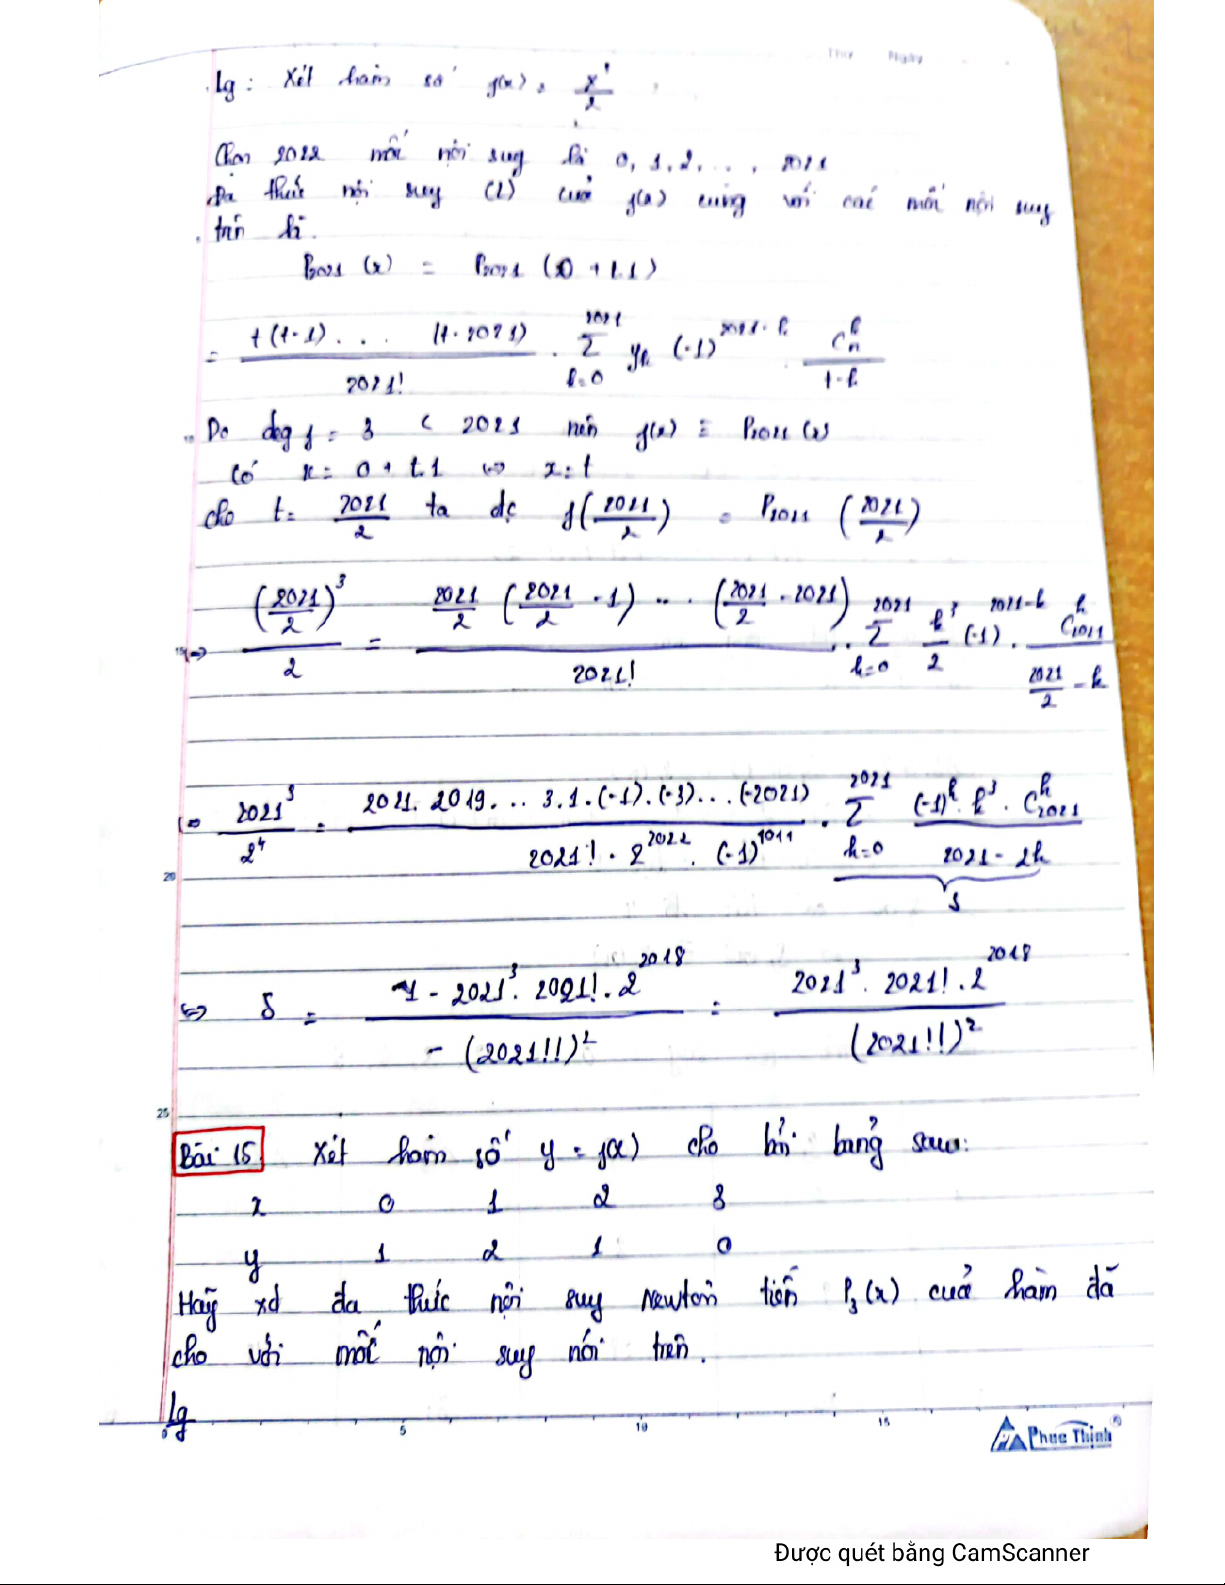 Thứ Ngày
Lg : Xét hàm số f(x) = x³/2
Chọn 2022 mốc nội suy là 0, 1, 2, . . , 2021
Đa thức nội suy (L) của f(x) cùng với các mốc nội suy
trên là.
P2021 (x) = P2021 (0 + t.1)
= t(t-1) . . . (t-2021) / 2021! . Σ(k=0 → 2021) yk (-1)^(2021-k) . C_n^k / (t-k)
Do deg f = 3 < 2021 nên f(x) ≡ P2021 (x)
Có x = 0 + t.1 ⇔ x = t
cho t = 2021/2 ta đc f(2021/2) = P2021 (2021/2)
⇔ (2021/2)³ / 2 = 2021/2 (2021/2 - 1) ... (2021/2 - 2021) / 2021! . Σ(k=0 → 2021) k³/2 (-1)^(2021-k) . C_2021^k / (2021/2 - k)
⇔ 2021³ / 2⁴ = 2021. 2019. .. 3.1.(-1).(-3)... (-2021) / 2021! . 2^2022 . (-1)^1011 . Σ(k=0 → 2021) (-1)^k . k³ . C_2021^k / (2021 - 2k)
S
⇔ S = -1 - 2021³. 2021!. 2^2018 / - (2021!!)² = 2021³. 2021! . 2^2018 / (2021!!)²
Bài 15 Xét hàm số y = f(x) cho bởi bảng sau:
x 0 1 2 3
y 1 2 1 0
Hãy xd đa thức nội suy Newton tiến P₃(x) của hàm đã
cho với mốc nội suy nói trên.
Lg
0 5 10 15
Phuc Thinh ®
Được quét bằng CamScanner